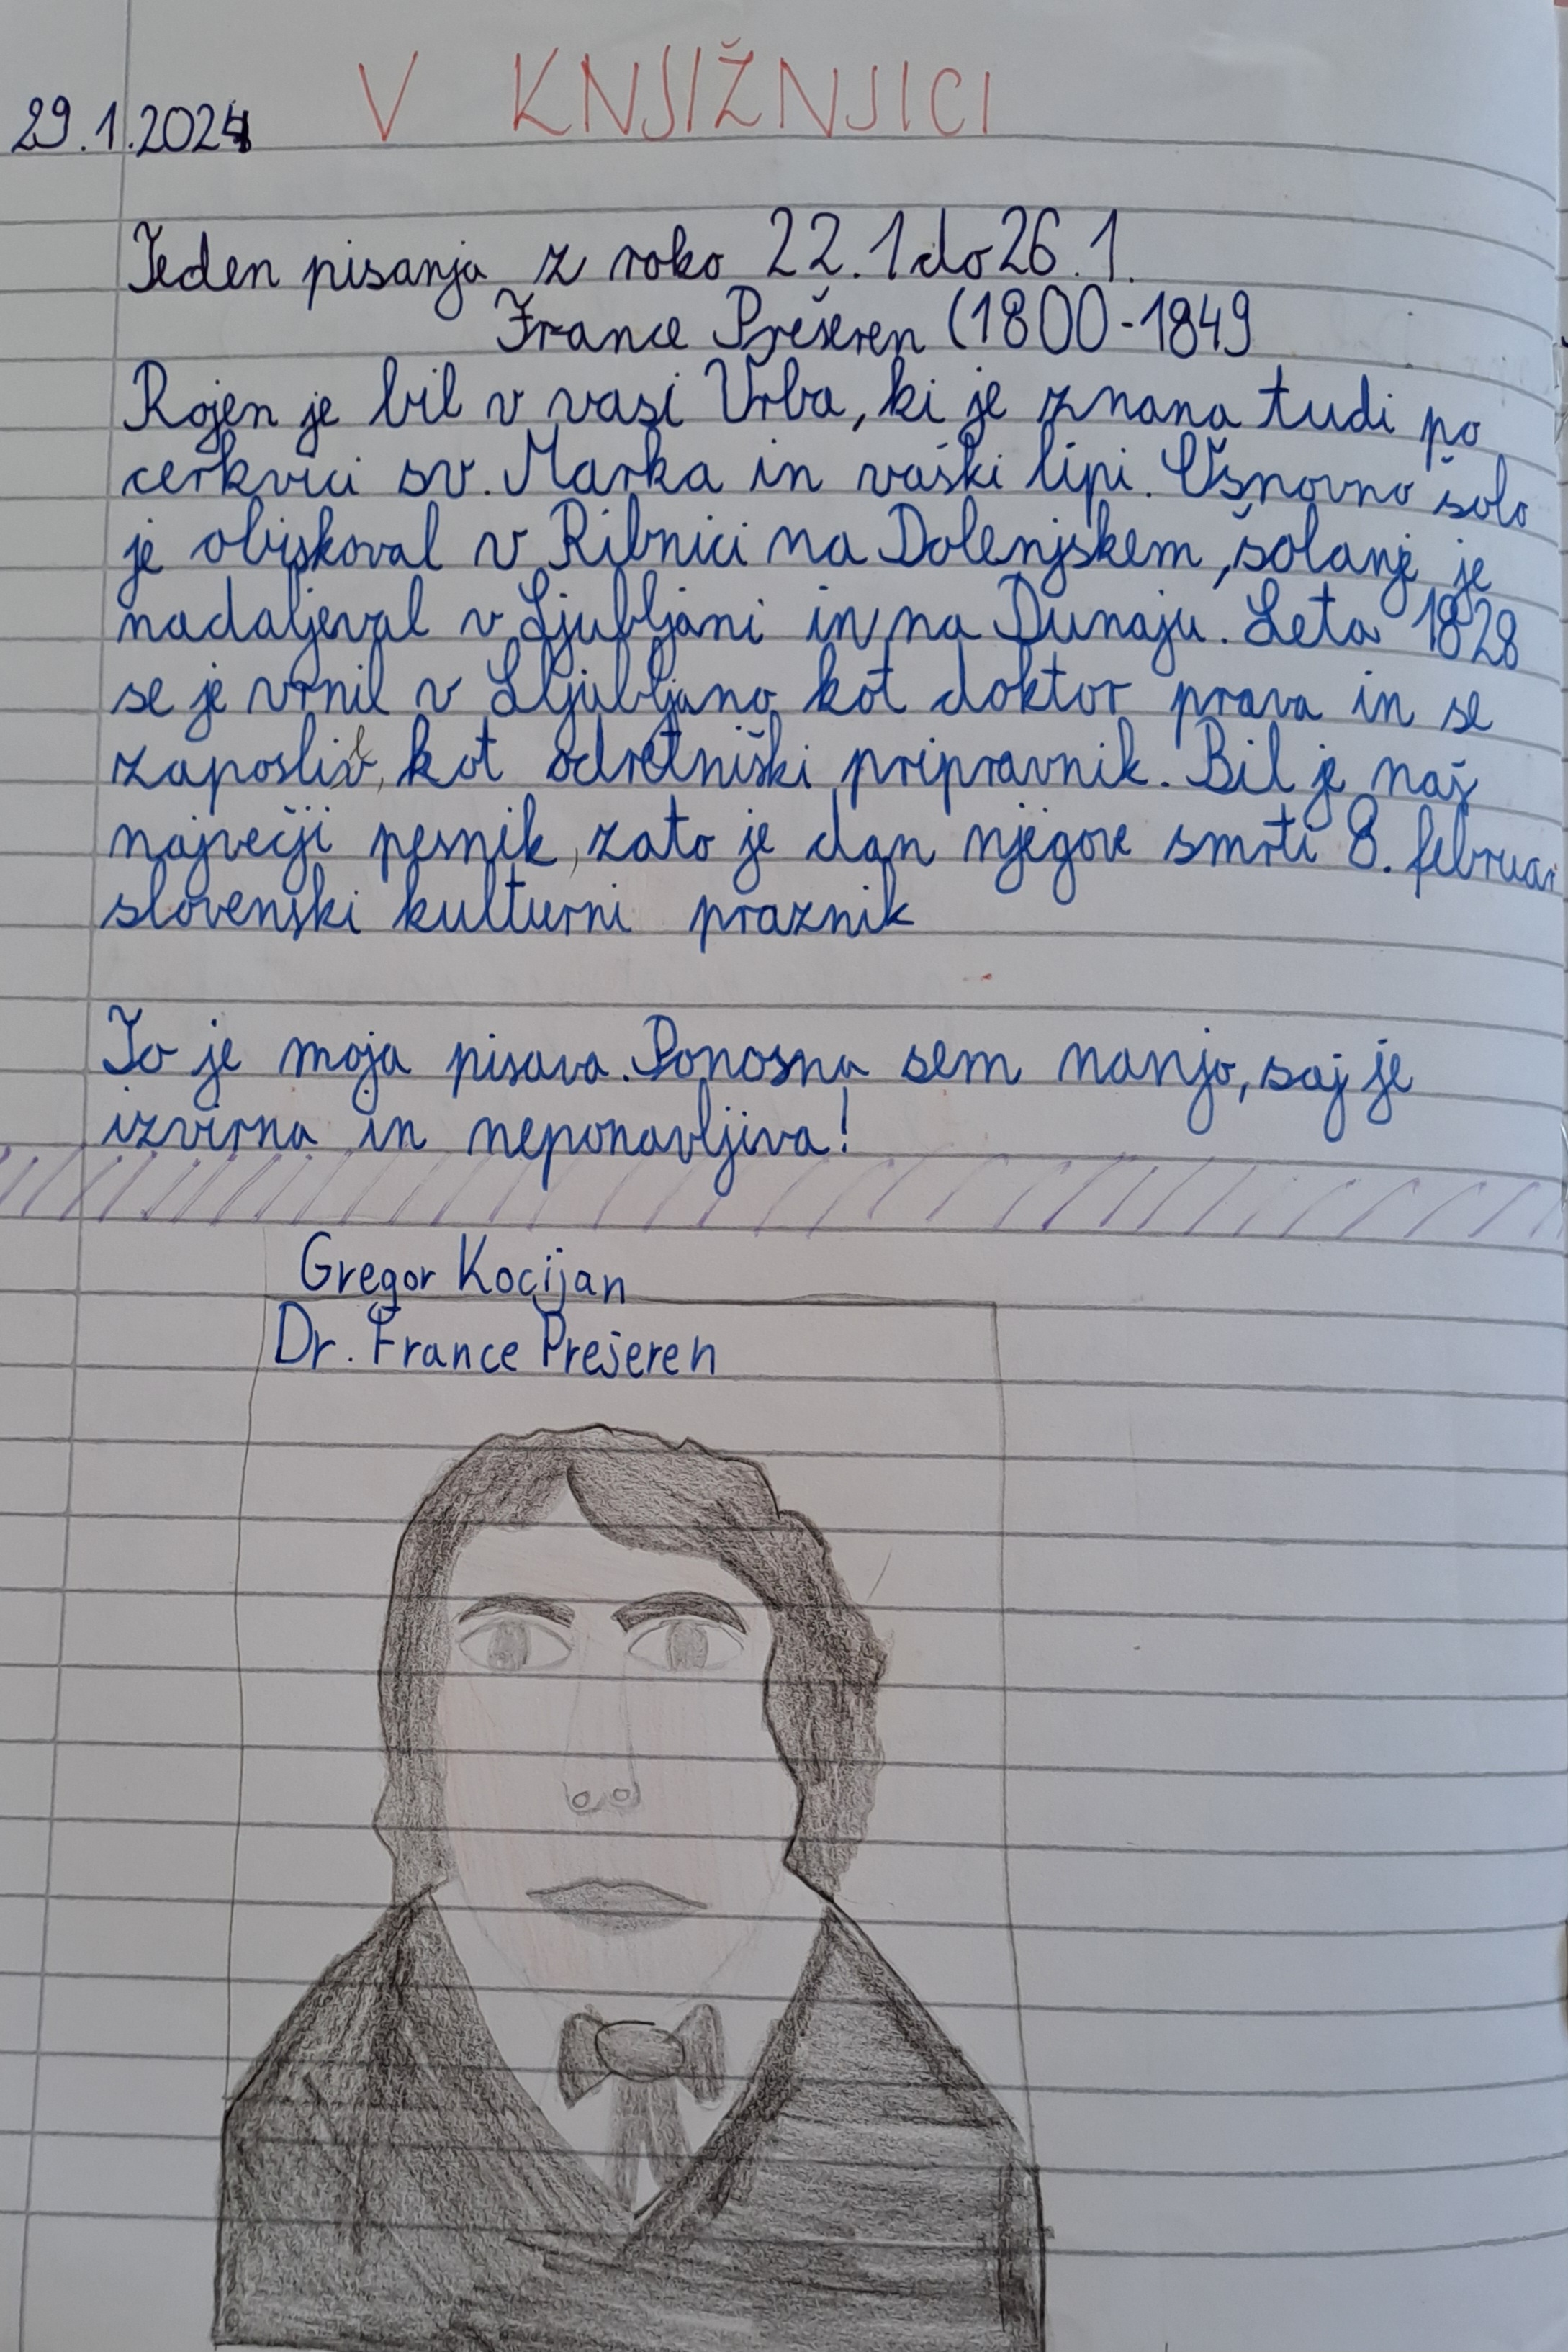 V KNJIŽNJICI
29.1.2024
Teden pisanja z roko 22.1 do 26.1.
France Prešeren (1800-1849
Rojen je bil v vasi Vrba, ki je znana tudi po
cerkvici sv. Marka in vaški lipi. Ošnovno šolo
je obiskoval v Ribnici na Dolenjskem, šolanje je
nadaljeval v Ljubljani in na Dunaju. Leta 1828
se je vrnil v Ljubljano kot doktor prava in se
zaposlil, kot odvetniški pripravnik. Bil je naš
največji pesnik, zato je dan njegove smrti 8. februar
slovenski kulturni praznik
To je moja pisava. Ponosna sem nanjo, saj je
izvirna in neponavljiva!
Gregor Kocijan
Dr. France Prešeren